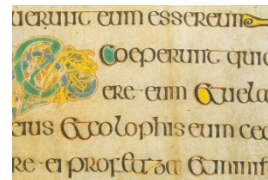 uerunt eum essereum
Coeperunt quid
ere eum Et uela
eius Et colophis eum ced
re ei profetiza Et minist